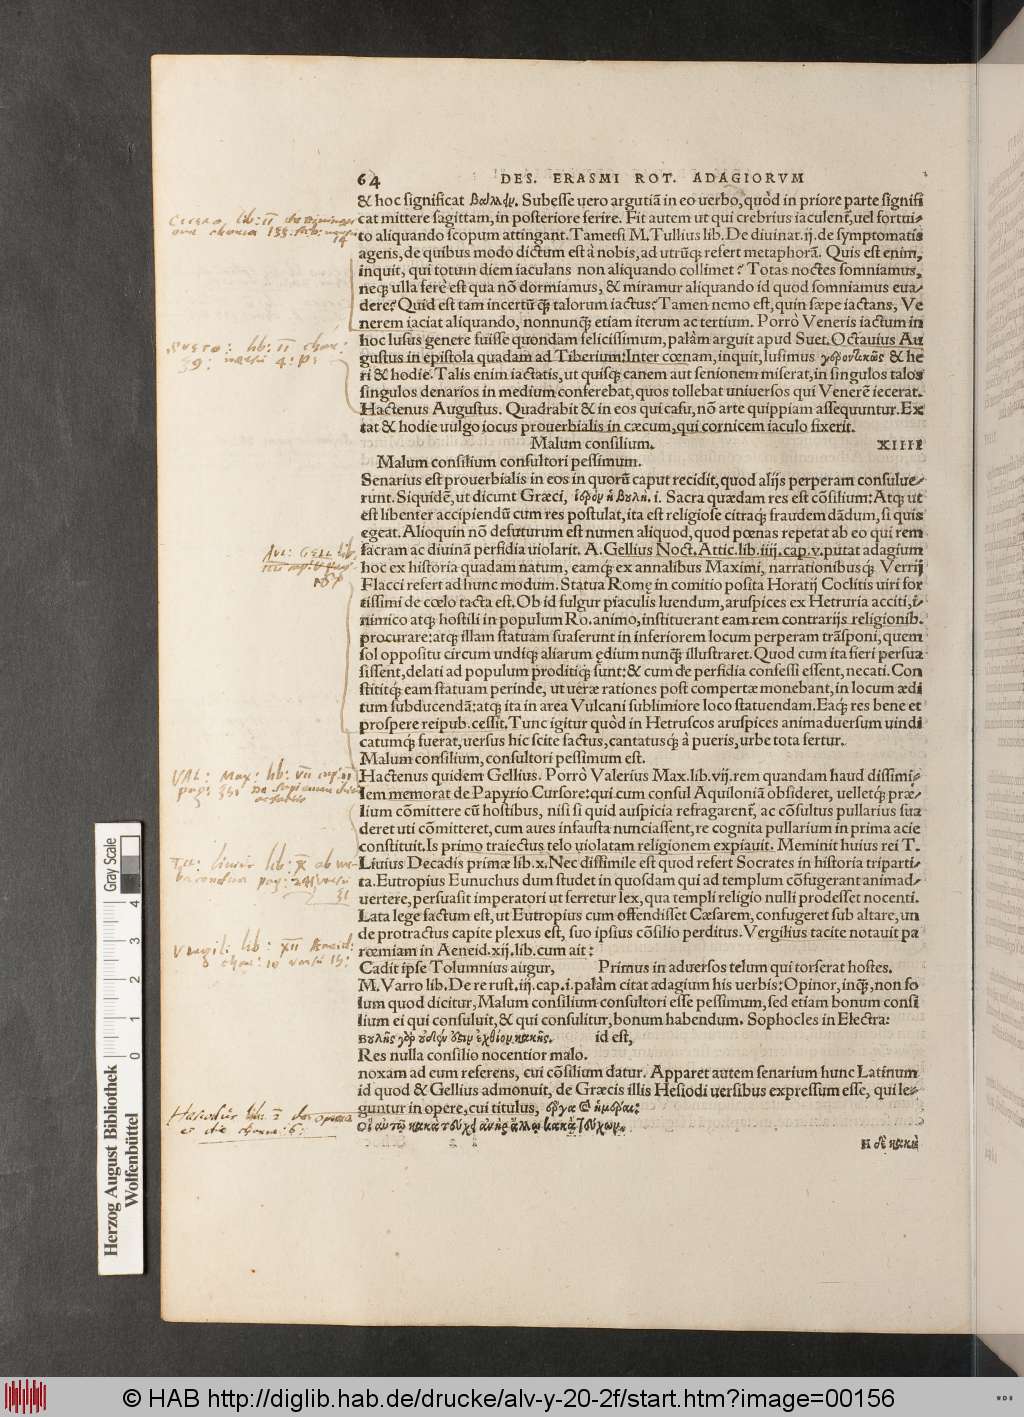 64 DES. ERASMI ROT. ADAGIORVM
& hoc significat βάλλειν. Subesse uero argutiā in eo uerbo, quòd in priore parte signifi
cat mittere sagittam, in posteriore ferire. Fit autem ut qui crebrius iaculent, uel fortui-
to aliquando scopum attingant. Tametsi M. Tullius lib. De diuinat. ij. de symptomatis
agens, de quibus modo dictum est à nobis, ad utrūq; refert metaphorā. Quis est enim,
inquit, qui totum diem iaculans non aliquando collimet? Totas noctes somniamus,
neq; ulla ferè est qua nō dormiamus, & miramur aliquando id quod somniamus eua-
dere? Quid est tam incertū q̃ talorum iactus? Tamen nemo est, quin sæpe iactans, Ve
nerem iaciat aliquando, nonnunq̃ etiam iterum ac tertium. Porrò Veneris iactum in
hoc lusus genere fuisse quondam felicissimum, palàm arguit apud Suet. Octauius Au
gustus in epistola quadam ad Tiberium: Inter cœnam, inquit, lusimus γεροντικῶς & he
ri & hodie. Talis enim iactatis, ut quisq; canem aut senionem miserat, in singulos talos
singulos denarios in medium conferebat, quos tollebat uniuersos qui Venerē iecerat.
Hactenus Augustus. Quadrabit & in eos qui casu, nō arte quippiam assequuntur. Ex
tat & hodie uulgo iocus prouerbialis in cæcum, qui cornicem iaculo fixerit.
Malum consilium. XIIII
Malum consilium consultori pessimum.
Senarius est prouerbialis in eos in quorū caput recidit, quod alijs perperam consulue-
runt. Siquidē, ut dicunt Græci, ἱερὸν ἡ βυλὴ. i. Sacra quædam res est cōsilium: Atq; ut
est libenter accipiendū cum res postulat, ita est religiose citraq; fraudem dādum, si quis
egeat. Alioquin nō defuturum est numen aliquod, quod pœnas repetat ab eo qui rem
sacram ac diuinā perfidia uiolarit. A. Gellius Noct. Attic. lib. iiij. cap. v. putat adagium
hoc ex historia quadam natum, eamq; ex annalibus Maximi, narrationibusq; Verrij
Flacci refert ad hunc modum. Statua Romę in comitio posita Horatij Coclitis uiri for
tissimi de cœlo tacta est. Ob id fulgur piaculis luendum, aruspices ex Hetruria acciti, i-
nimico atq; hostili in populum Ro. animo, instituerant eam rem contrarijs religionib.
procurare: atq; illam statuam suaserunt in inferiorem locum perperam trāsponi, quem
sol oppositu circum undiq; aliarum ędium nunq̃ illustraret. Quod cum ita fieri persua
sissent, delati ad populum proditiq; sunt: & cum de perfidia confessi essent, necati. Con
stititq; eam statuam perinde, ut ueræ rationes post compertæ monebant, in locum ædi
tum subducendā: atq; ita in area Vulcani sublimiore loco statuendam. Eaq; res bene et
prospere reipub. cessit. Tunc igitur quòd in Hetruscos aruspices animaduersum uindi
catumq; fuerat, uersus hic scite factus, cantatusq; à pueris, urbe tota fertur.
Malum consilium, consultori pessimum est.
Hactenus quidem Gellius. Porrò Valerius Max. lib. vij. rem quandam haud dissimi-
lem memorat de Papyrio Cursore: qui cum consul Aquiloniā obsideret, uelletq; præ-
lium cōmittere cū hostibus, nisi si quid auspicia refragarent, ac cōsultus pullarius sua
deret uti cōmitteret, cum aues infausta nunciassent, re cognita pullarium in prima acie
constituit. Is primo traiectus telo uiolatam religionem expiauit. Meminit huius rei T.
Liuius Decadis primæ lib. x. Nec dissimile est quod refert Socrates in historia triparti-
ta. Eutropius Eunuchus dum studet in quosdam qui ad templum cōfugerant animad-
uertere, persuasit imperatori ut ferretur lex, qua templi religio nulli prodesset nocenti.
Lata lege factum est, ut Eutropius cum offendisset Cæsarem, confugeret sub altare, un
de protractus capite plexus est, suo ipsius cōsilio perditus. Vergilius tacite notauit pa
rœmiam in Aeneid. xij. lib. cum ait:
Cadit ipse Tolumnius augur, Primus in aduersos telum qui torserat hostes.
M. Varro lib. De re rust. iij. cap. i. palàm citat adagium his uerbis: Opinor, inq̃, non so
lum quod dicitur, Malum consilium consultori esse pessimum, sed etiam bonum consi
lium ei qui consuluit, & qui consulitur, bonum habendum. Sophocles in Electra:
Βυλῆς γὰρ ὐδέν ὐσιν ἐχθίον κακῆς. id est,
Res nulla consilio nocentior malo.
noxam ad eum referens, cui cōsilium datur. Apparet autem senarium hunc Latinum
id quod & Gellius admonuit, de Græcis illis Hesiodi uersibus expressum esse, qui le-
guntur in opere, cui titulus, ἔργα καὶ ἡμέραι:
Οἷ αὐτῷ κακὰ τεύχει ἀνὴρ ἄλλῳ κακὰ τεύχων.
Η δὲ κακὴ
Cicero lib: II de diuinati
one
14
Sueto: lib: II
39: versu 4: p:
Aul: Gell lib.
VAL: Max: lib: VII cap: II
pag: 351
lib: X ab ur-
be condita pag: 241 versu
31
Virgil: lib: XII Aeneid:
Hesiodus lib: 2 de opera
et die 6:
Gray Scale
4
3
2
1
0
Herzog August Bibliothek
Wolfenbüttel
© HAB http://diglib.hab.de/drucke/alv-y-20-2f/start.htm?image=00156